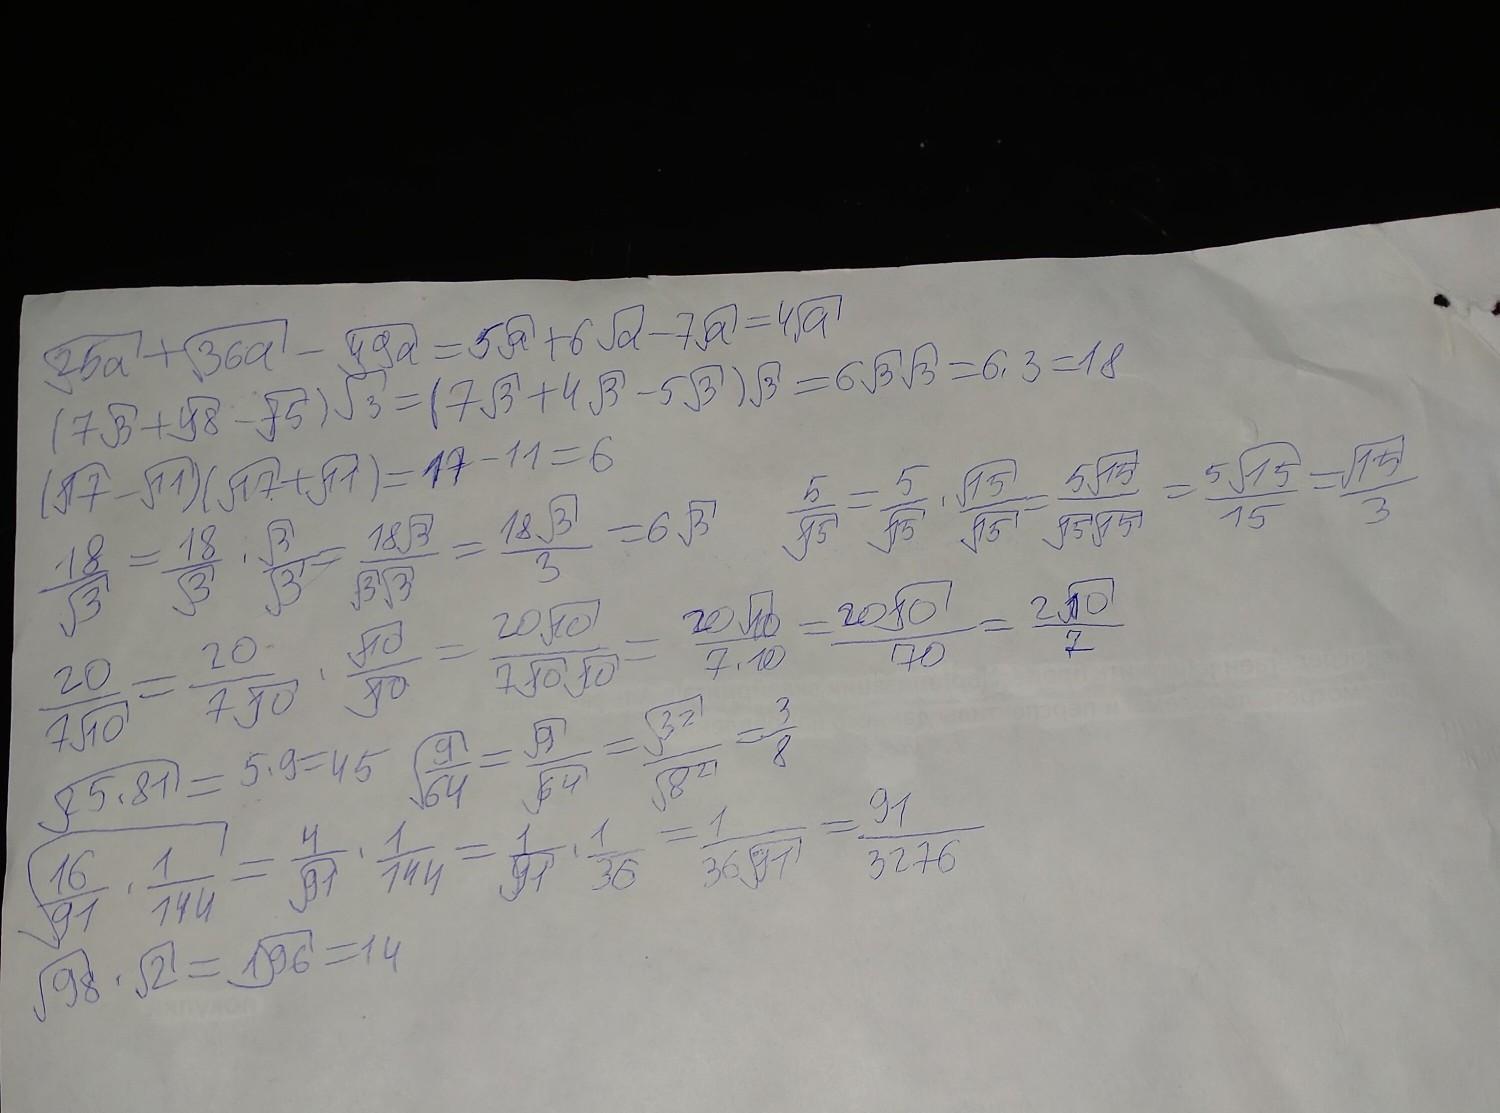 √25a + √36a - √49a = 5√a + 6√a - 7√a = 4√a
(7√3 + √48 - √75)√3 = (7√3 + 4√3 - 5√3)√3 = 6√3√3 = 6·3 = 18
(√17 - √11)(√17 + √11) = 17 - 11 = 6
18/√3 = 18/√3 · √3/√3 = 18√3/√3√3 = 18√3/3 = 6√3
5/√15 = 5/√15 · √15/√15 = 5√15/√15√15 = 5√15/15 = √15/3
20/7√10 = 20/7√10 · √10/√10 = 20√10/7√10√10 = 20√10/7·10 = 20√10/70 = 2√10/7
√25·81 = 5·9 = 45 √9/64 = √9/√64 = √3²/√8² = 3/8
√16/91 · 1/144 = 4/√91 · 1/144 = 1/√91 · 1/36 = 1/36√91 = 91/3276
√98 · √2 = √196 = 14